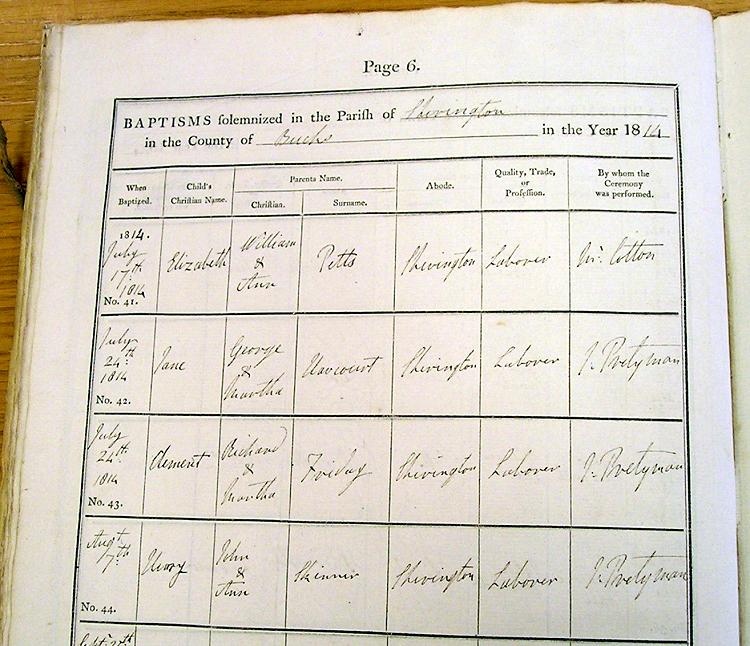 Page 6.
BAPTISMS solemnized in the Parish of Sherington
in the County of Bucks in the Year 1814
When Baptized.
Child's Christian Name.
Parents Name.
Christian.
Surname.
Abode.
Quality, Trade, or Profession.
By whom the Ceremony was performed.
1814.
July
17th
1814
No. 41.
Elizabeth
William
&
Ann
Petts
Sherington
Laborer
Wm. Cotton
July
24th
1814
No. 42.
Jane
George
&
Martha
Harcourt
Sherington
Laborer
J. Pretyman
July
24th
1814
No. 43.
Clement
Richard
&
Martha
Friday
Sherington
Laborer
J. Pretyman
Augt
7th
No. 44.
Henry
John
&
Ann
Skinner
Sherington
Laborer
J. Pretyman